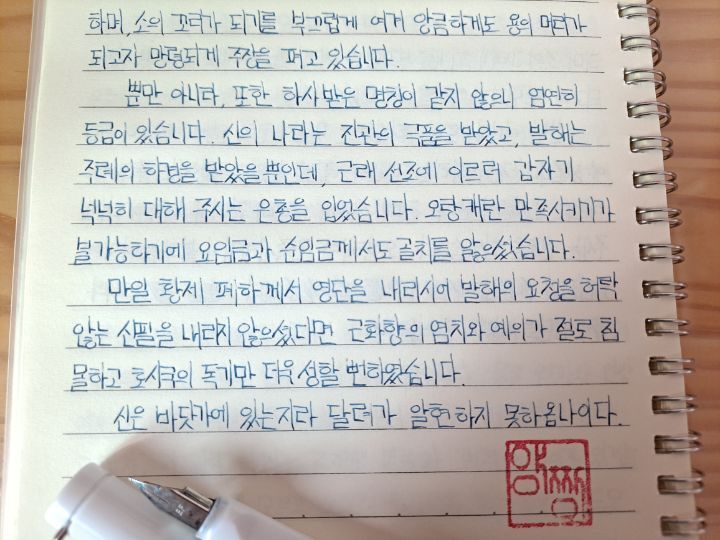 하며, 소의 꼬리가 되기를 부끄럽게 여겨 앙큼하게도 용의 머리가
되고자 망령되게 주장을 펴고 있습니다.
뿐만 아니라, 또한 하사받은 명칭이 같지 않으니 엄연히
등급이 있습니다. 신의 나라는 진관의 극품을 받았고, 발해는
주례의 하경을 받았을 뿐인데, 근래 선조에 이르러 갑자기
넉넉히 대해 주시는 은총을 입었습니다. 오랑캐란 만족시키기가
불가능하기에 요임금과 순임금께서도 골치를 앓으셨습니다.
만일 황제 폐하께서 영단을 내리시어 발해의 요청을 허락
않는 신필을 내리지 않으셨다면 근화향의 염치와 예의가 절로 침
몰하고 호시국의 독기만 더욱 성할 뻔하였습니다.
신은 바닷가에 있는지라 달려가 알현하지 못하옵나이다.